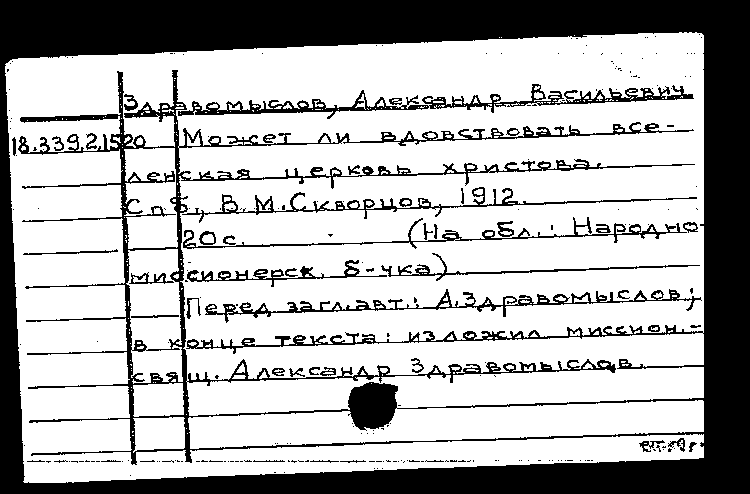 Здравомыслов, Александр Васильевич
18.339.2.1520 Может ли вдовствовать все-
ленская церковь христова.
Спб., В.М.Скворцов, 1912.
20 с. (На обл.: Народно-
миссионерск. б-чка).
Перед загл.авт.: А.Здравомыслов;
в конце текста: изложил миссион.-
свящ. Александр Здравомыслов.